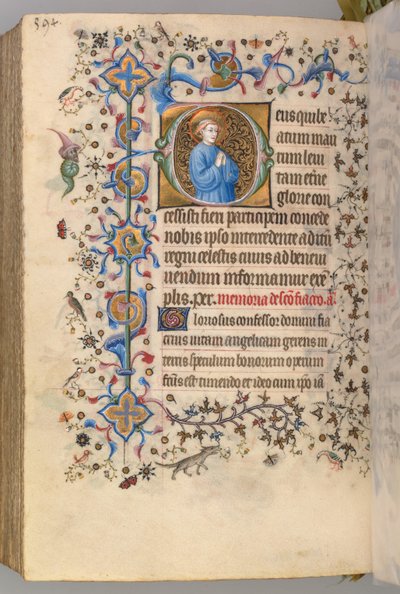 394
Deus qui be
atum mau
rum leui
tam etne
glorie con
cessisti fieri participem concede
nobis ipso intercedente aditu
regni celestis cuius ad beneui
uendium informamur exe
plis. per. memoria de sco fiacro. a.
Gloriosus confessor domini fia
crius uitam angelicam gerens in
terris speculum bonorum operum
fcus est timendo et ideo cum xpo ia